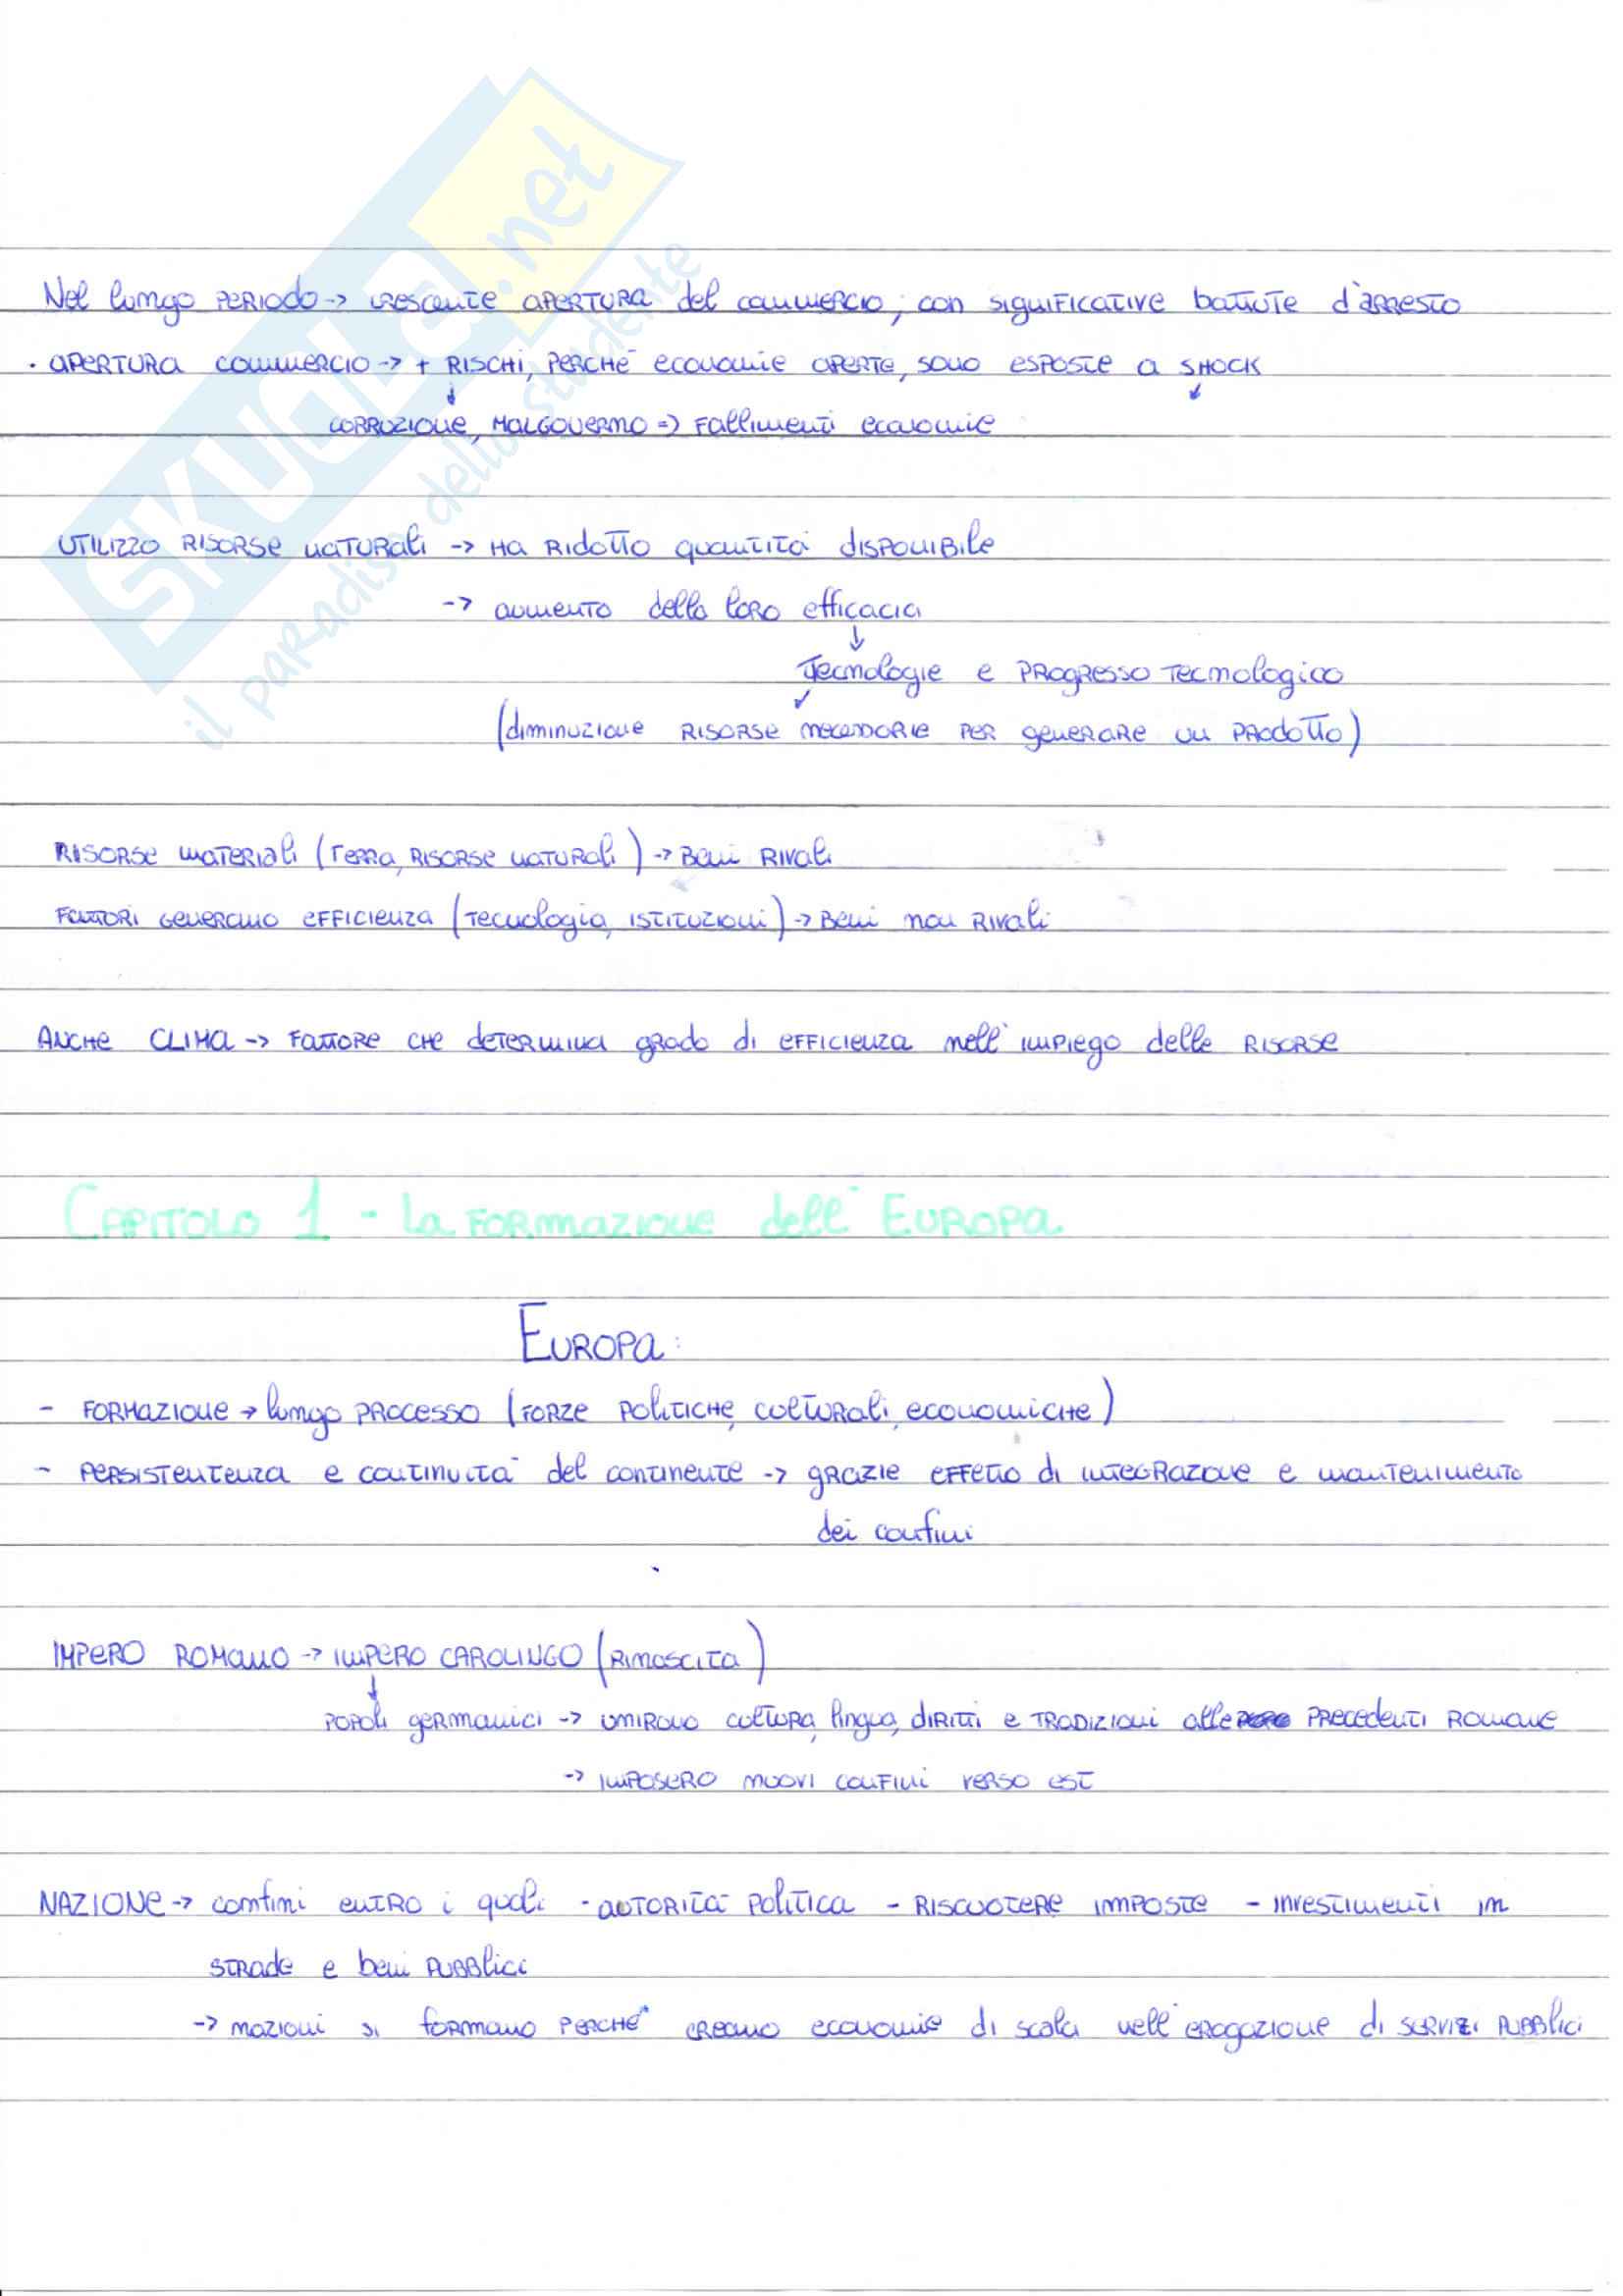 SKUOLA.net
il paradiso dello studente
Nel lungo periodo -> crescente apertura del commercio, con significative battute d'arresto
· apertura commercio -> + rischi, perché economie aperte, sono esposte a shock
↓ ↙
corruzione, malgoverno => fallimenti economie
utilizzo risorse naturali -> ha ridotto quantità disponibile
-> aumento della loro efficacia
↓
Tecnologie e progresso tecnologico
↙
(diminuzione risorse necessarie per generare un prodotto)
Risorse materiali (terra, risorse naturali) -> beni rivali
Fattori generano efficienza (tecnologia, istituzioni) -> beni non rivali
Anche clima -> fattore che determina grado di efficienza nell'impiego delle risorse
Capitolo 1 - La formazione dell'Europa
Europa:
- formazione -> lungo processo (forze politiche, culturali, economiche)
- persistentenza e continuità del continente -> grazie effetto di integrazione e mantenimento
dei confini
Impero Romano -> Impero Carolingo (rinascita)
↓
popoli germanici -> unirono cultura, lingua, diritti e tradizioni alle precedenti romane
-> imposero nuovi confini verso est
NAZIONE -> confini entro i quali - autorità politica - riscuotere imposte - investimenti in
strade e beni pubblici
-> nazioni si formano perché creano economie di scala nell'erogazione di servizi pubblici